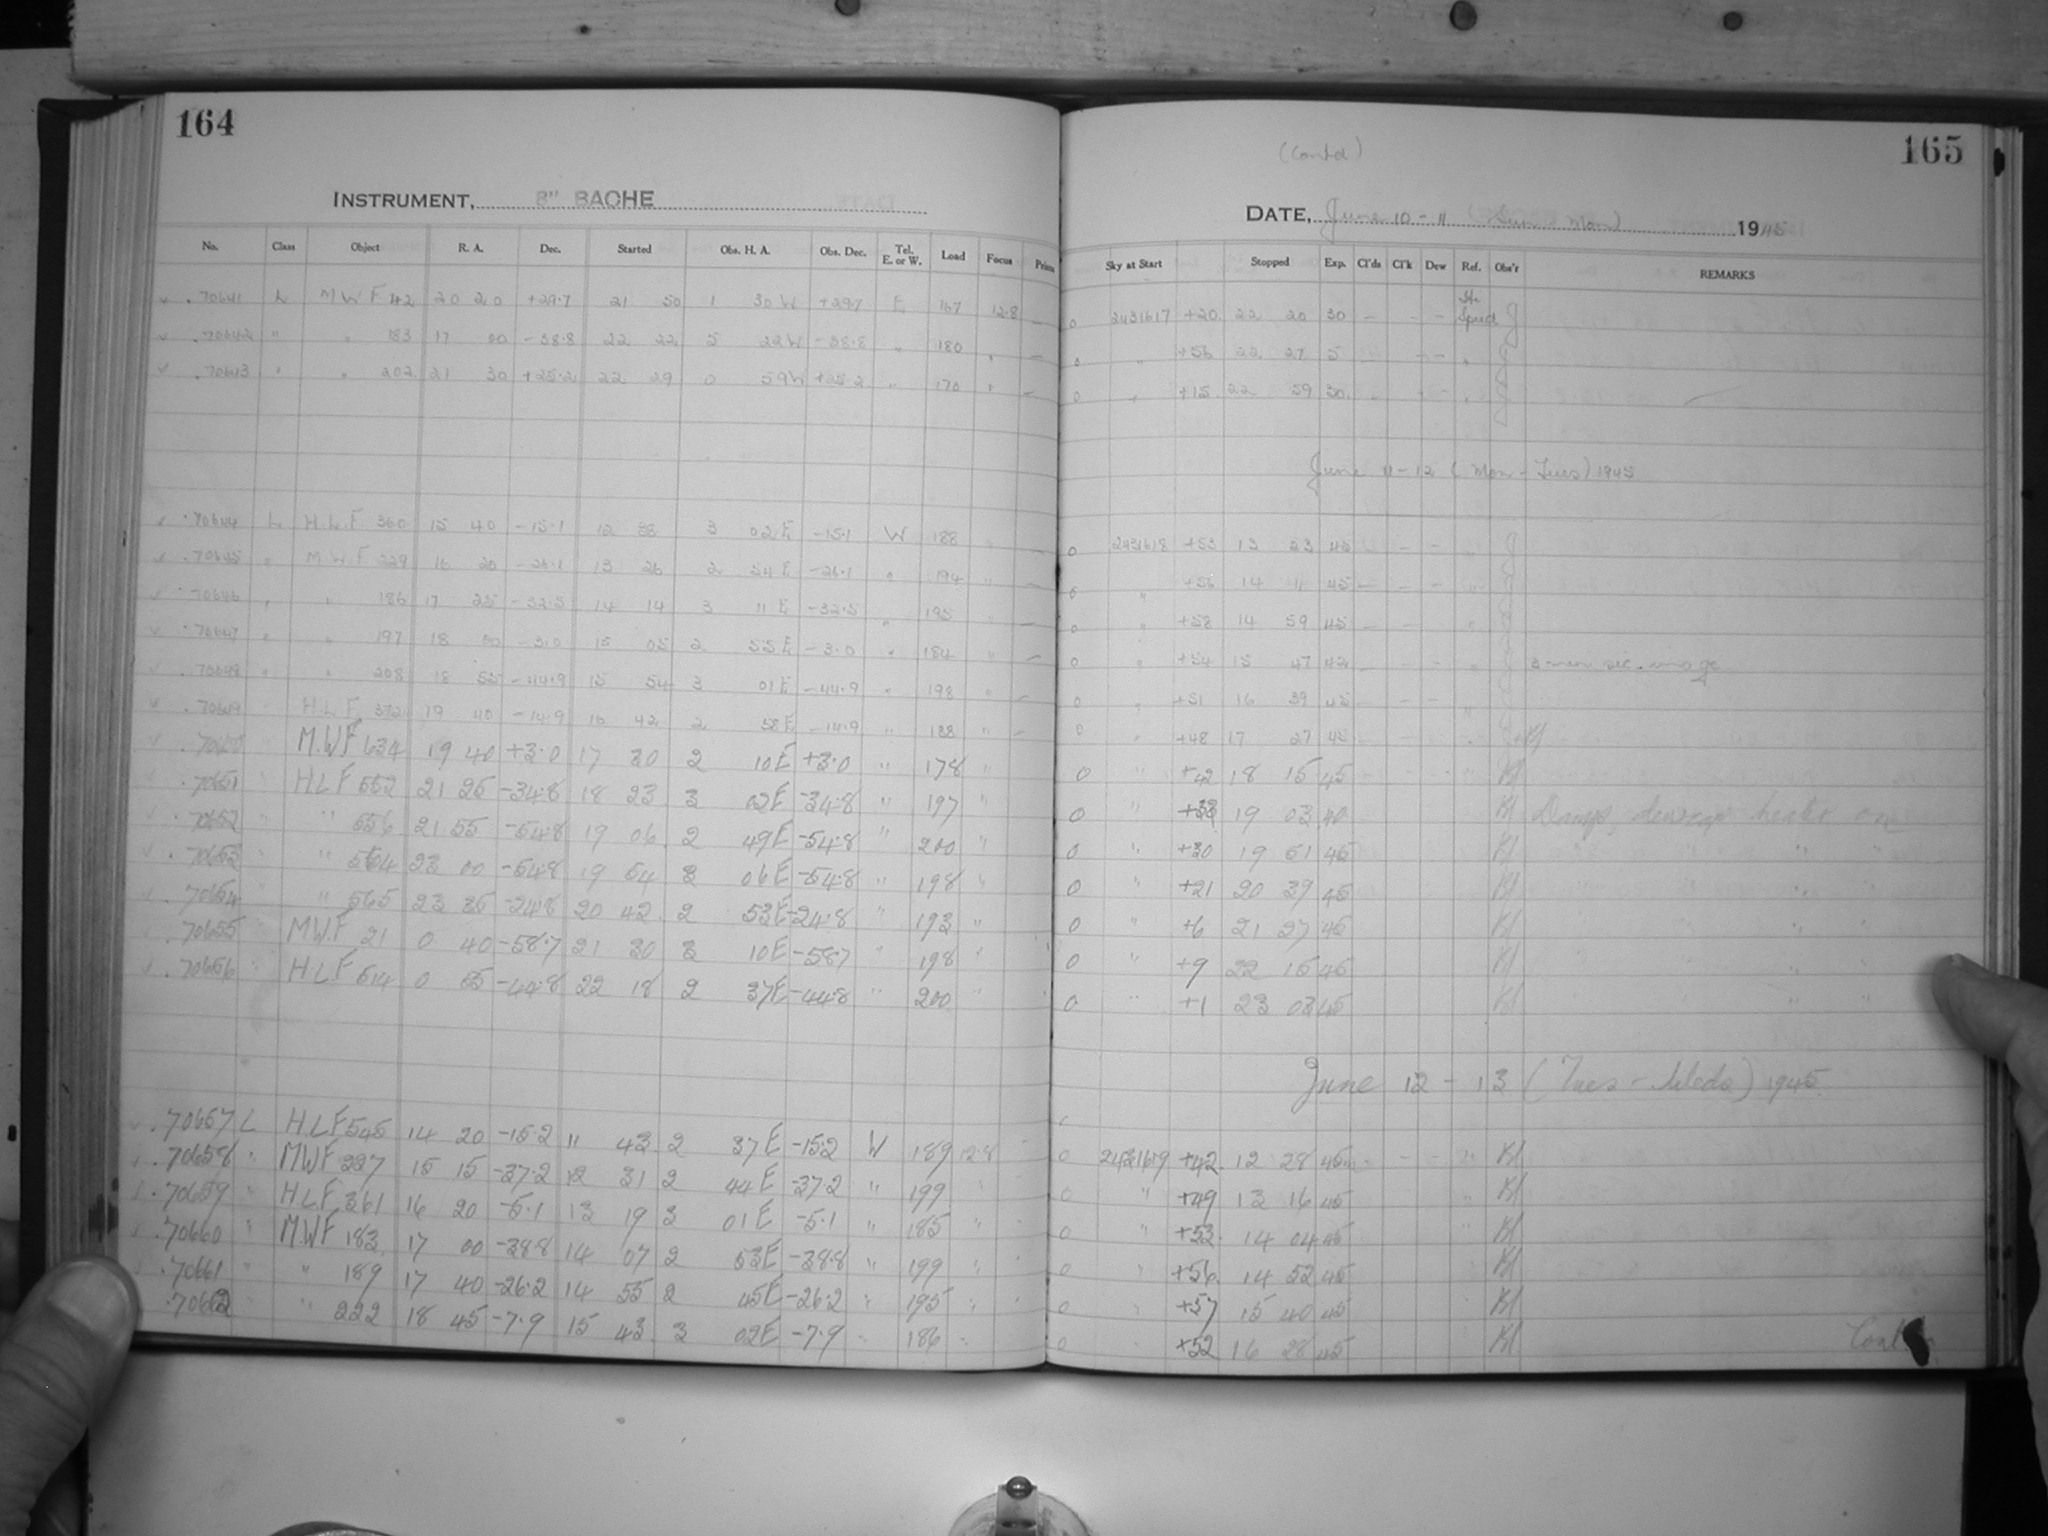 164
INSTRUMENT, 8" BACHE
No. Class Object R. A. Dec. Started Obs. H. A. Obs. Dec. Tel. E. or W. Load Focus Prism
.70641 L MWF 42 20 20 +29.7 21 50 1 30 W +29.7 E 167 12.8 —
.70642 " " 183 17 00 -38.8 22 22 5 22 W -38.8 " 180 " —
.70643 " " 202 21 30 +25.2 22 29 0 59 W +25.2 " 170 " —
.70644 L H.L.F 360 15 40 -15.1 12 38 3 02 E -15.1 W 188 "
.70645 " M.W.F 229 16 20 -26.1 13 26 2 54 E -26.1 " 194 " —
.70646 " " 186 17 25 -32.5 14 14 3 11 E -32.5 " 195 "
.70647 " " 197 18 00 -3.0 15 05 2 55 E -3.0 " 184 " —
.70648 " " 208 18 55 -44.9 15 54 3 01 E -44.9 " 198 " —
.70649 H.L.F. 372 19 40 -14.9 16 42 2 58 E -14.9 " 188 " —
.70650 M.W.F 634 19 40 +3.0 17 30 2 10 E +3.0 " 178 "
.70651 " HLF 552 21 25 -34.8 18 23 3 02 E -34.8 " 197 "
.70652 " " 556 21 55 -54.8 19 06 2 49 E -54.8 " 200 "
.70653 " " 564 23 00 -54.8 19 54 3 06 E -54.8 " 198 "
.70654 " " 565 23 35 -24.8 20 42 2 53 E -24.8 " 193 "
.70655 MWF 21 0 40 -58.7 21 30 3 10 E -58.7 " 198 "
.70656 " H.L.F 514 0 55 -44.8 22 18 2 37 E -44.8 " 200 "
.70657 L H.L.F 545 14 20 -15.2 11 43 2 37 E -15.2 W 189 12.8
.70658 " MWF 227 15 15 -37.2 12 31 2 44 E -37.2 " 199
.70659 " HLF 361 16 20 -5.1 13 19 3 01 E -5.1 " 185 "
.70660 " MWF 183 17 00 -38.8 14 07 2 53 E -38.8 " 199 "
.70661 " " 189 17 40 -26.2 14 55 2 45 E -26.2 " 195 "
.70662 " " 222 18 45 -7.9 15 43 3 02 E -7.9 " 186 "
165
(Contd)
DATE, June 10 - 11 (Sun - Mon) 1945
Sky at Start Stopped Exp. Cl'ds Cl'k Dew Ref. Obs'r REMARKS
0 2431617 +20 22 20 30 — - - Sped J
0 " +56 22 27 5 - - " J
0 " +15 22 59 30 - - " J
June 11 - 12 (Mon - Tues) 1945
0 2431618 +53 13 23 45 - - - " J
0 " +56 14 11 45 — - - "
0 " +58 14 59 45 — - - "
0 " +54 15 47 42 — - - " 3 min sec. image
0 " +51 16 39 45 — - -
0 " +48 17 27 45 - - - " Kf
0 " +42 18 15 45 Kf
0 " +33 19 03 40 Kf Damp, dewcap heater on
0 " +30 19 51 45 Kf " " "
0 " +21 20 39 45 Kf " " "
0 " +6 21 27 45 Kf " " "
0 " +9 22 15 45 Kf " " "
0 " +1 23 03 45 Kf " " "
June 12 - 13 (Tues - Weds) 1945
0 2431619 +42 12 28 45 - - - " Kf
0 " +49 13 16 45 " Kf
0 " +53 14 04 45 " Kf
0 " +56 14 52 45 Kf
0 " +57 15 40 45 Kf
0 " +52 16 28 45 Kf